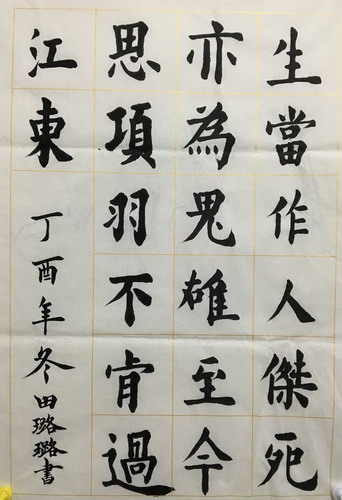 生當作人傑死
亦為鬼雄至今
思項羽不肯過
江東
丁酉年冬田璐璐書